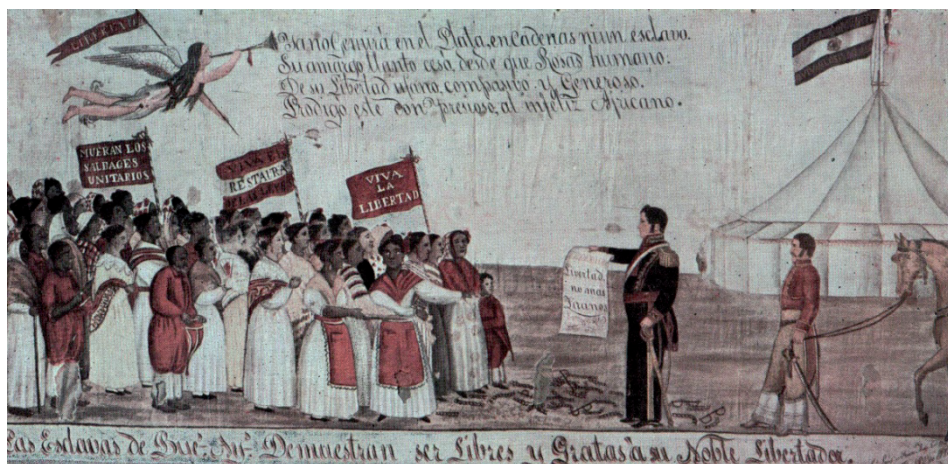 LIBERTAD
Ya no Gemirá en el Plata, en Cadenas ni un esclavo.
Su amargo llanto ceso, desde que Rosas humano.
De su Libertad ufano, compasivo y Generoso.
Prodigó este don precioso, al infeliz Africano.
MUERAN LOS
SALBAGES
UNITARIOS
VIVA EL
RESTAURADOR
DE LAS LEYES
VIVA
LA
LIBERTAD
Libertad
no mas
Tiranos
Las Esclavas de Bue.s Ay.s Demuestran ser Libres y Gratas á su Noble Libertador.